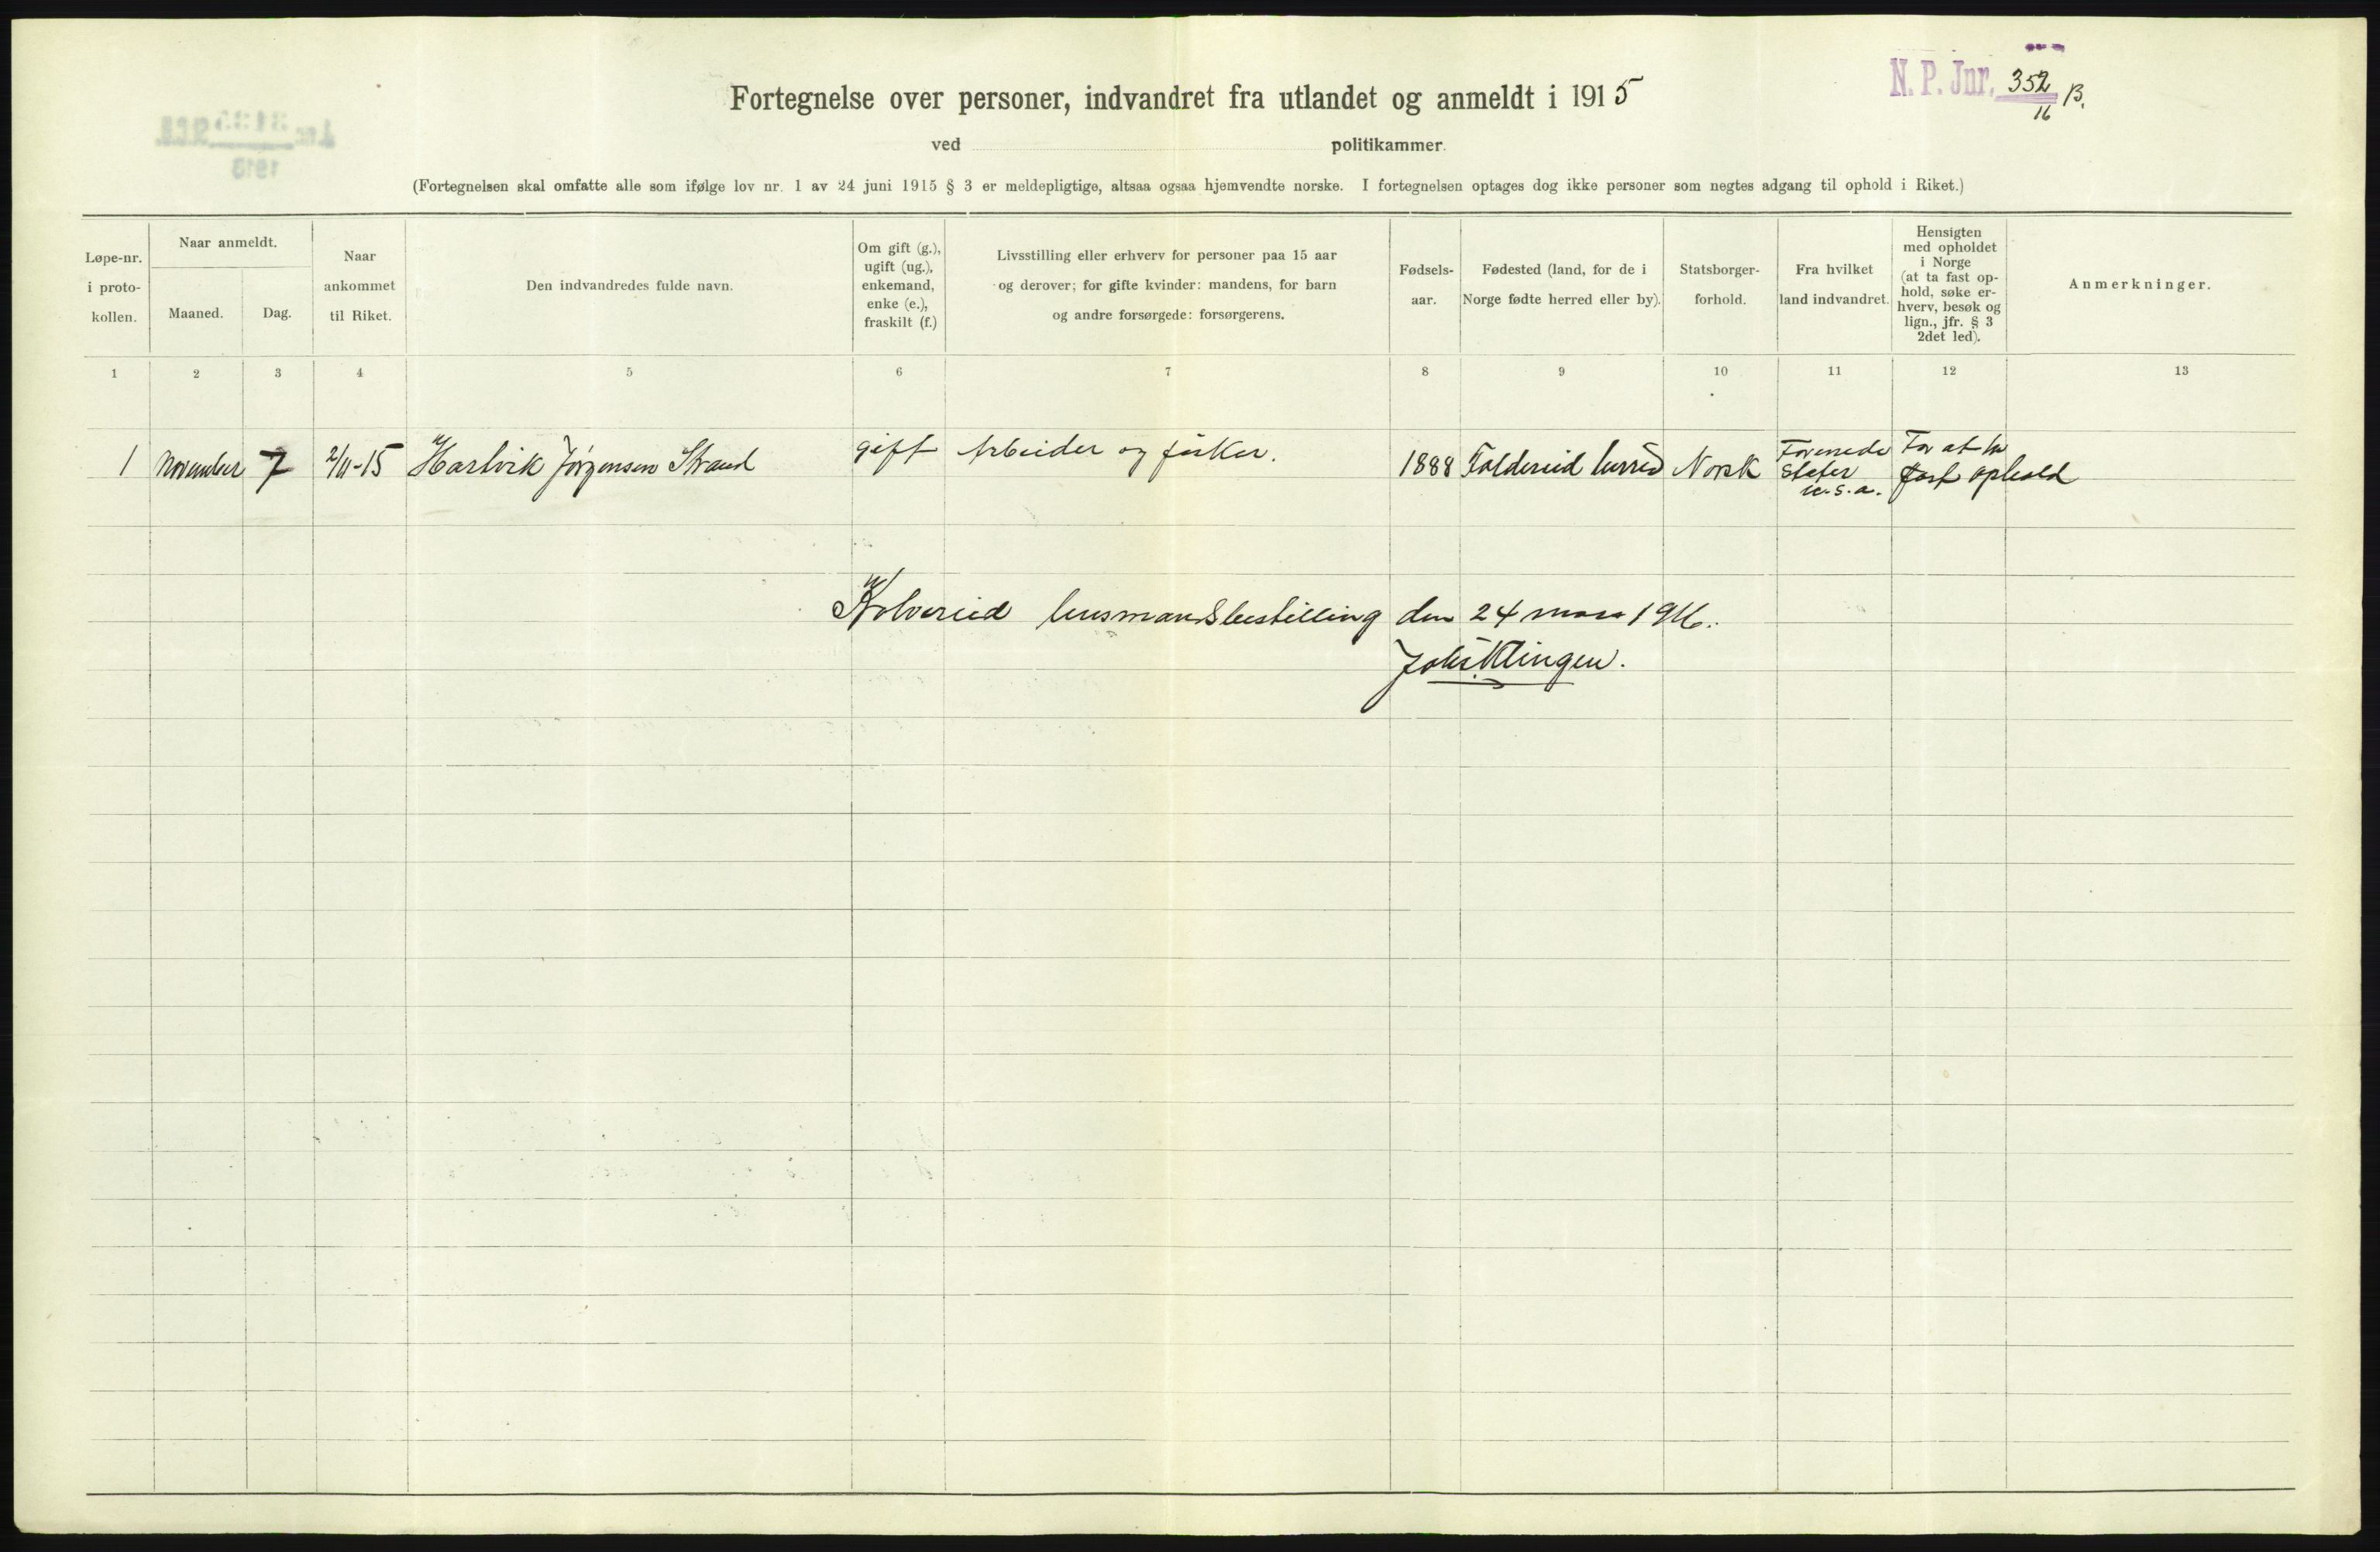 N. P. Jnr. 352/16 B.
Fortegnelse over personer, indvandret fra utlandet og anmeldt i 1915
ved politikammer.
(Fortegnelsen skal omfatte alle som ifølge lov nr. 1 av 24 juni 1915 § 3 er meldepligtige, altsaa ogsaa hjemvendte norske. I fortegnelsen optages dog ikke personer som negtes adgang til ophold i Riket.)
Løpe-nr. i proto-kollen.
Naar anmeldt.
Maaned.
Dag.
Naar ankommet til Riket.
Den indvandredes fulde navn.
Om gift (g.), ugift (ug.), enkemand, enke (e.), fraskilt (f.)
Livsstilling eller erhverv for personer paa 15 aar og derover; for gifte kvinder: mandens, for barn og andre forsørgede: forsørgerens.
Fødsels-aar.
Fødested (land, for de i Norge fødte herred eller by).
Statsborger-forhold.
Fra hvilket land indvandret.
Hensigten med opholdet i Norge (at ta fast op-hold, søke er-hverv, besøk og lign., jfr. § 3 2det led).
Anmerkninger.
1 2 3 4 5 6 7 8 9 10 11 12 13
1 November 7 2/11-15 Hartvik Jørgensen Strand gift Arbeider og fisker. 1888 Foldereid herred Norsk Forenede Stater u.s.a. For at ta fast ophold
Kolvereid lensmandsbestilling den 24 mars 1916.
Johs. Klingen.